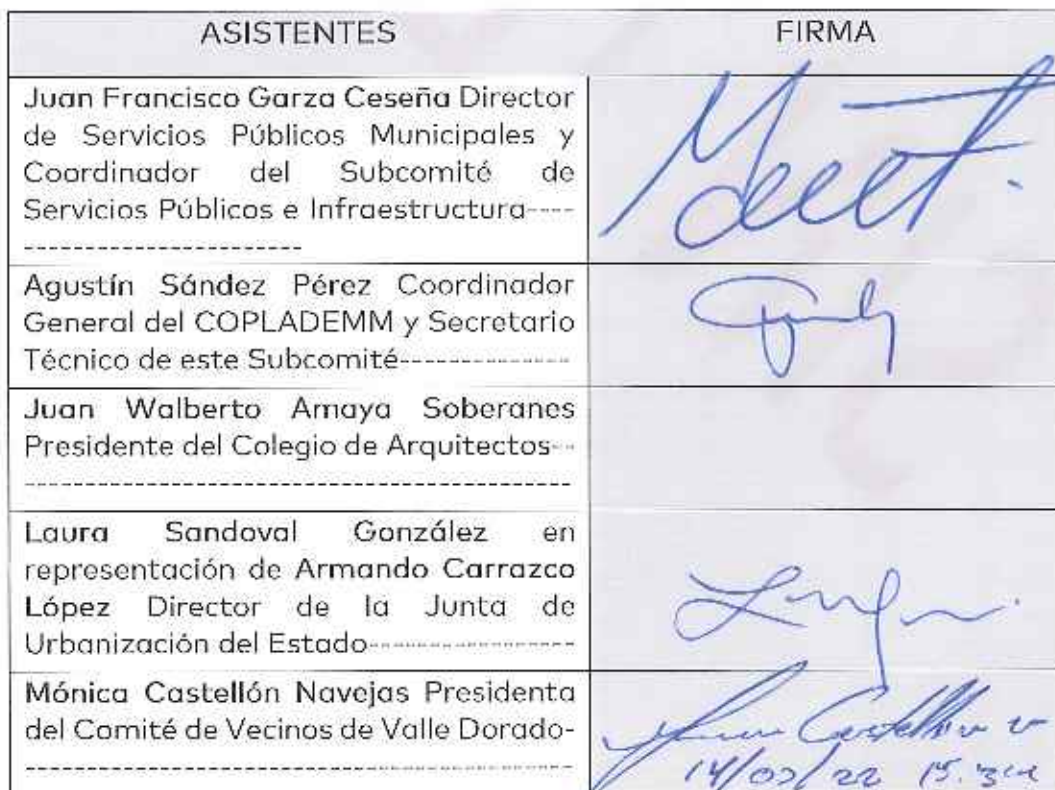 ASISTENTES
FIRMA
Juan Francisco Garza Ceseña Director
de Servicios Públicos Municipales y
Coordinador del Subcomité de
Servicios Públicos e Infraestructura----
-----------------------
Agustín Sández Pérez Coordinador
General del COPLADEMM y Secretario
Técnico de este Subcomité---------------
Juan Walberto Amaya Soberanes
Presidente del Colegio de Arquitectos--
---------------------------------------------
Laura Sandoval González en
representación de Armando Carrazco
López Director de la Junta de
Urbanización del Estado-----------------
Mónica Castellón Navejas Presidenta
del Comité de Vecinos de Valle Dorado-
---------------------------------------------
Castellón